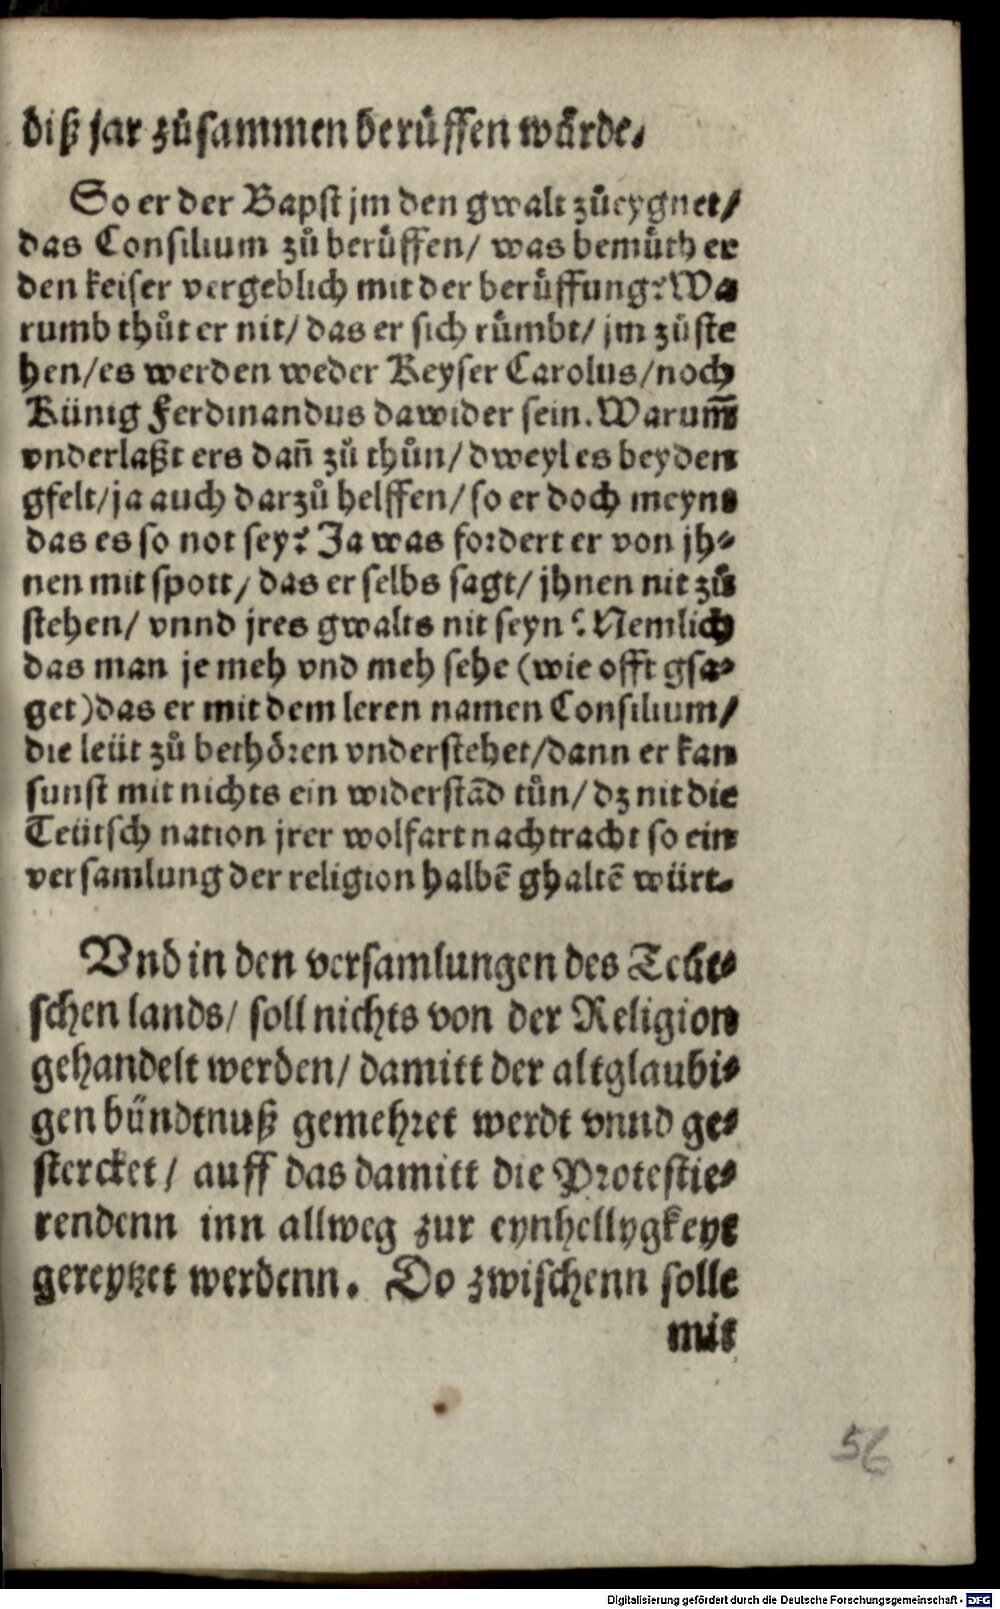 diß jar zůsammen berůffen wůrde.
So er der Bapst jm den gwalt zůeygnet/
das Consilium zů berůffen/ was bemůth er
den keiser vergeblich mit der berůffung? Wa
rumb thůt er nit/ das er sich růmbt/ jm zůste
hen/ es werden weder Keyser Carolus/ noch
Künig Ferdinandus dawider sein. Warum̄
vnderlaßt ers dañ zů thůn/ dweyl es beyden
gfelt/ ja auch darzů helffen/ so er doch meynt
das es so not sey? Ja was fordert er von jh⸗
nen mit spott/ das er selbs sagt/ jhnen nit zů
stehen/ vnnd jres gwalts nit seyn? Nemlich
das man je meh vnd meh sehe (wie offt gsa⸗
get) das er mit dem leren namen Consilium/
die leüt zů bethören vnderstehet/ dann er kan
sunst mit nichts ein widerstād tůn/ dz nit die
Teütsch nation jrer wolfart nachtracht so ein
versamlung der religion halbē ghaltē würt.
Vnd in den versamlungen des Teüt⸗
schen lands/ soll nichts von der Religion
gehandelt werden/ damitt der altglaubi⸗
gen bündtnuß gemehret werdt vnnd ge⸗
stercket/ auff das damitt die Protestie⸗
rendenn inn allweg zur eynhellygkeyt
gereytzet werdenn. Do zwischenn solle
mit
56
Digitalisierung gefördert durch die Deutsche Forschungsgemeinschaft - DFG